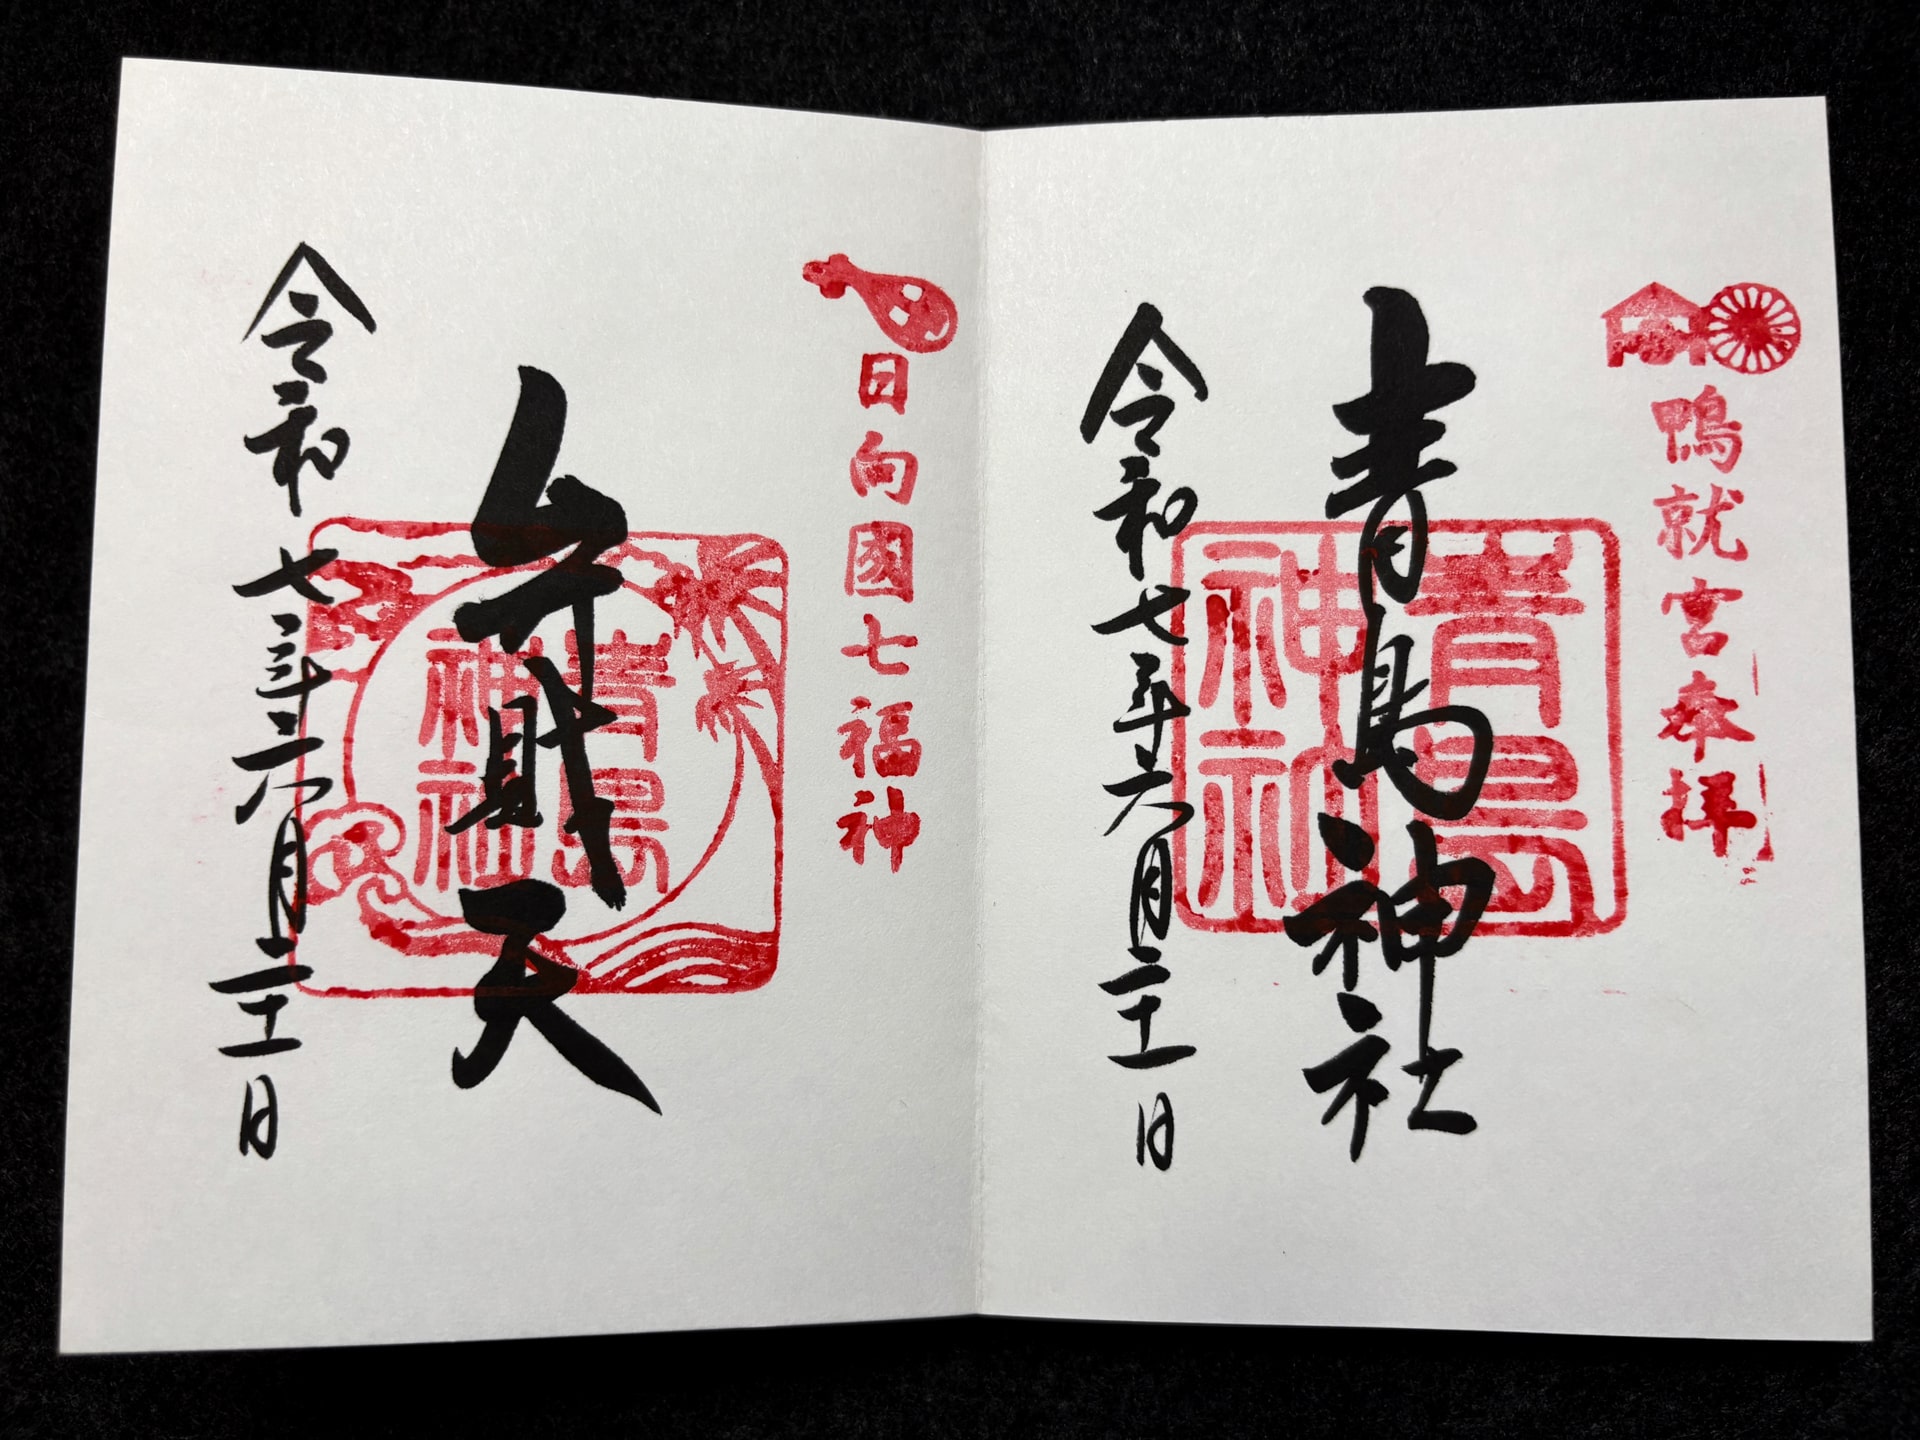 鴨就宮奉拝
青島神社
青島
神社
令和七年六月二十一日
日向國七福神
弁財天
青島
神社
令和七年六月二十一日